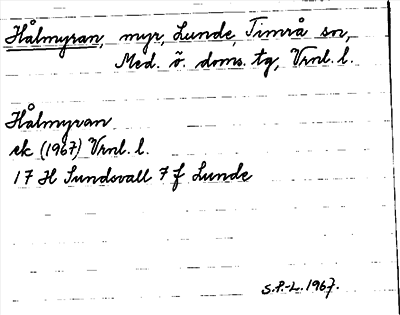 Hålmyran, myr, Lunde, Timrå sn,
Med. ö. doms. tg, Vrnl. l.
Hålmyran
ek (1967) Vrnl. l.
17 H Sundsvall 7 f Lunde
S.P.-L. 1967.